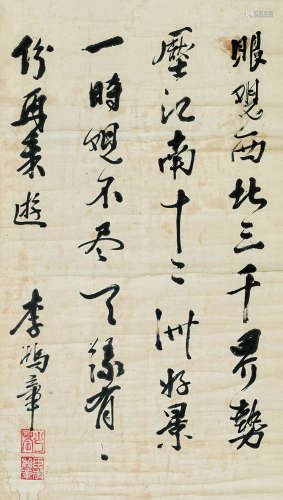 眼観西北三千界勢
壓江南十二洲好景
一時覌不盡天緣有〻
份再来遊
李鴻章